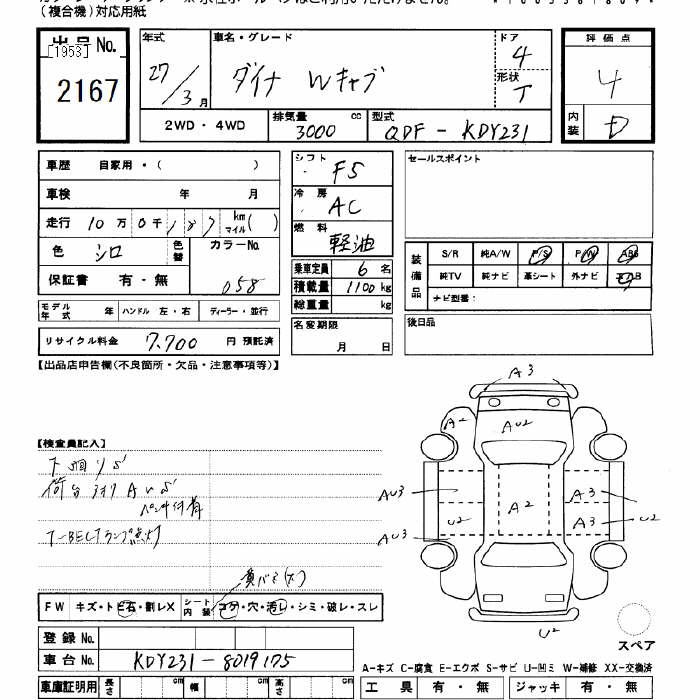 (複合機)対応用紙
出品No.
[1953]
2167
年式
27/3月
車名・グレード
ダイナ Wキャブ
ドア
4
形状
T
評価点
4
内装
D
2WD・4WD
排気量 3000 cc
型式
QDF-KDY231
車歴 自家用・( )
車検 年 月
走行 10万0千187 km マイル( )
色 シロ
色替
カラーNo.
058
保証書 有・無
シフト
F5
冷房
AC
燃料
軽油
乗車定員 6名
積載量 1100kg
総重量 kg
名変期限
月 日
セールスポイント
装備品
S/R 純A/W P/S P/W ABS
純TV 純ナビ 革シート 外ナビ エアB
ナビ型番:
後日品
モデル年式 年 ハンドル 左・右 ディーラー・並行
リサイクル料金 7,700 円 預託済
【出品店申告欄(不良箇所・欠品・注意事項等)】
【検査員記入】
下廻りS
T-BELTランプ点灯
FW キズ・トビ石・割レX シート内装 コゲ・穴・汚レ・シミ・破レ・スレ
登録No.
車台No. KDY231-8019175
車庫証明用 長さ cm 幅 cm 高さ cm
A3
A2
AU2
AU3
A2
A3
U2
A3
U2
AU3
U2
スペア
A-キズ C-腐食 E-エクボ S-サビ U-凹ミ W-補修 XX-交換済
工具 有・無 ジャッキ 有・無